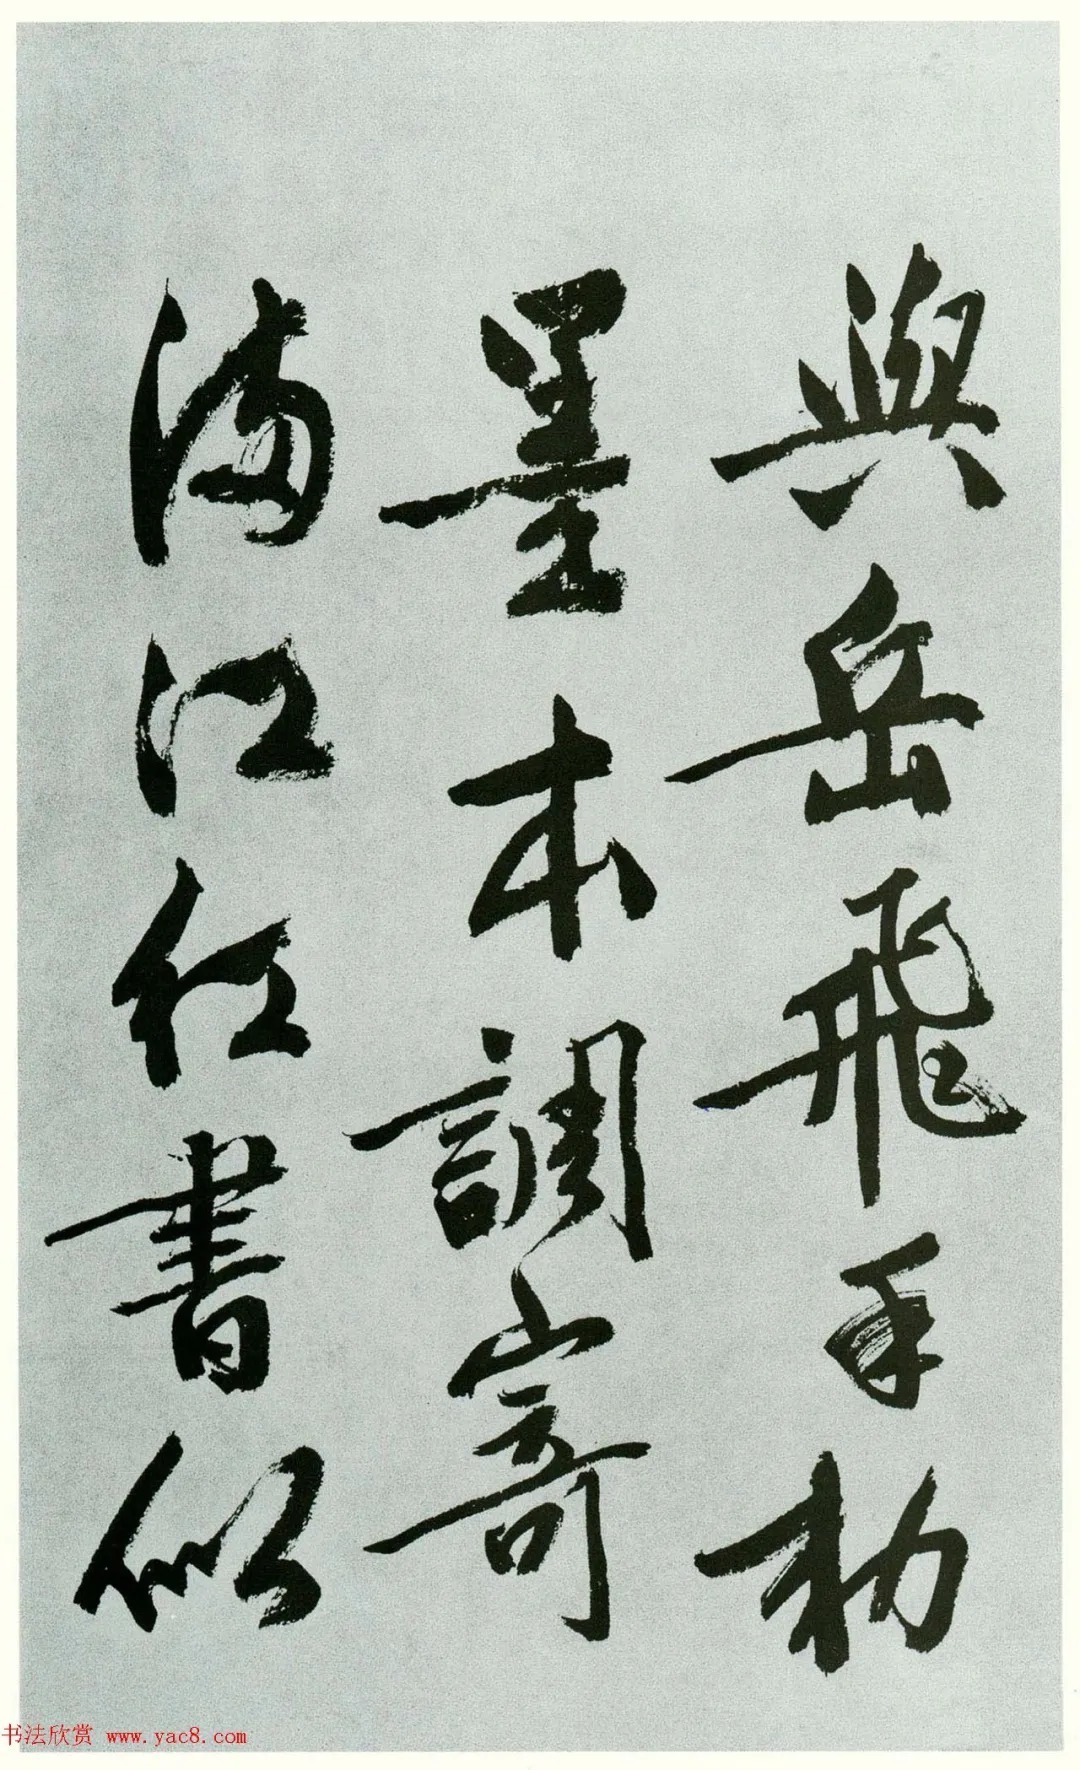 與岳飛手勑
墨本調寄
滿江红書似
书法欣赏 www.yac8.com